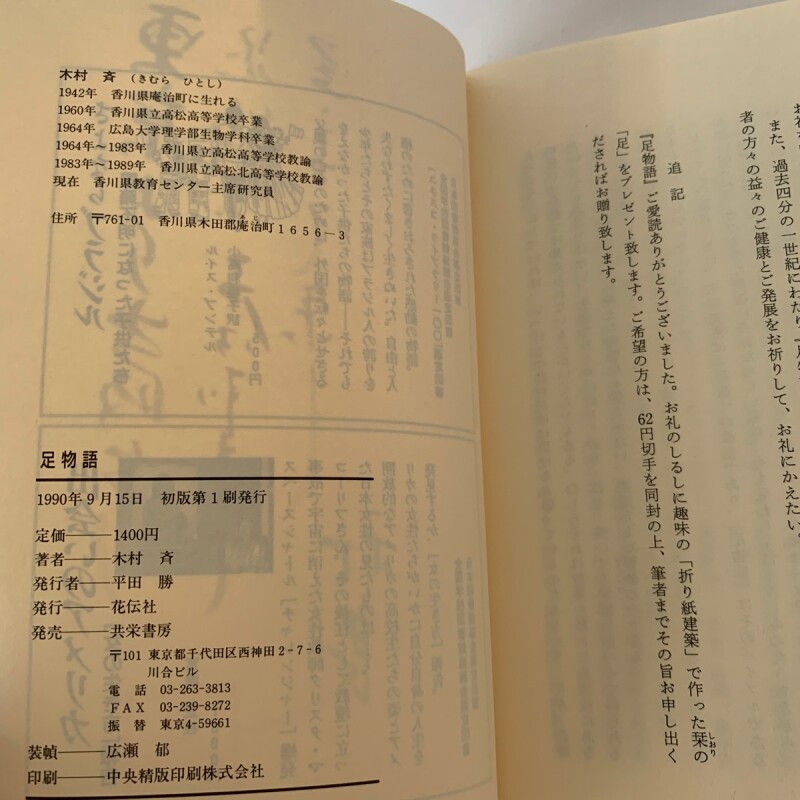 お礼
また、過去四分の一世紀にわたり『足
者の方々の益々のご健康とご発展をお祈りして、お礼にかえたい。
追記
『足物語』ご愛読ありがとうございました。お礼のしるしに趣味の「折り紙建築」で作った栞の
しおり
「足」をプレゼント致します。ご希望の方は、62円切手を同封の上、筆者までその旨お申し出く
だされればお贈り致します。
木村 斉（きむら ひとし）
1942年 香川県庵治町に生れる
1960年 香川県立高松高等学校卒業
1964年 広島大学理学部生物学科卒業
1964年～1983年 香川県立高松高等学校教諭
1983年～1989年 香川県立高松北高等学校教諭
現在 香川県教育センター主席研究員
住所 〒761-01 香川県木田郡庵治町1656-3
あじ
足物語
1990年9月15日 初版第1刷発行
定価――1400円
著者――木村 斉
発行者――平田 勝
発行――花伝社
発売――共栄書房
〒101 東京都千代田区西神田2-7-6
川合ビル
電話 03-263-3813
FAX 03-239-8272
振替 東京4-59661
装幀――広瀬 郁
印刷――中央精版印刷株式会社